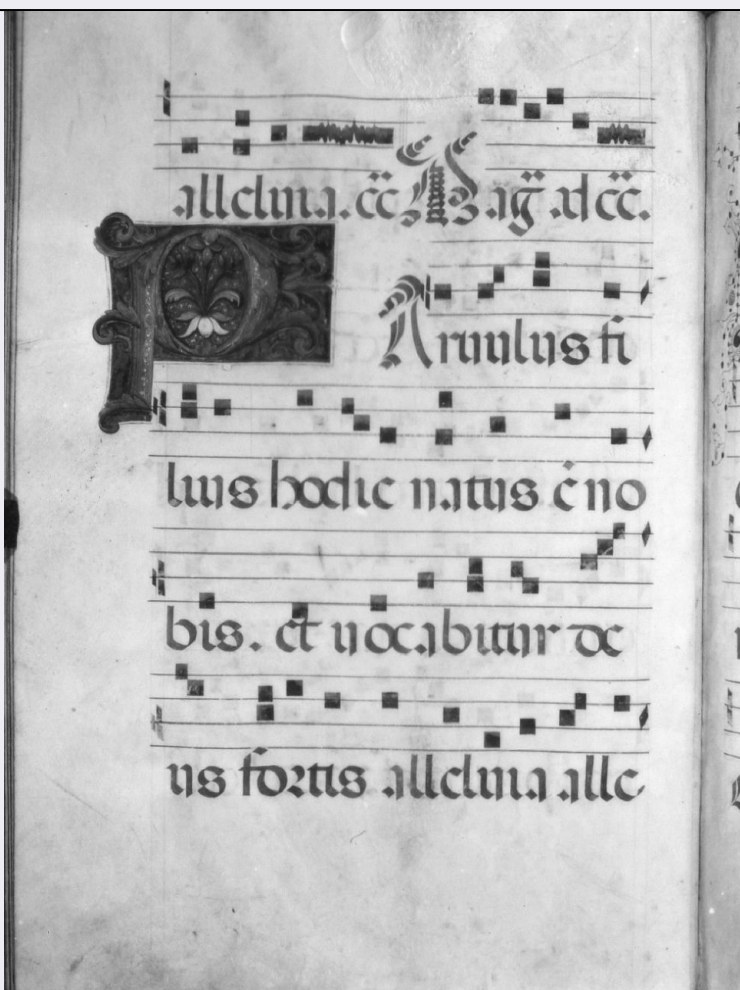 alleluia. c̄c̄ Mag̃. ad c̄c̄.
PArvulus fi
lius hodie natus ē no
bis. et vocabitur de
us fortis alleluia alle